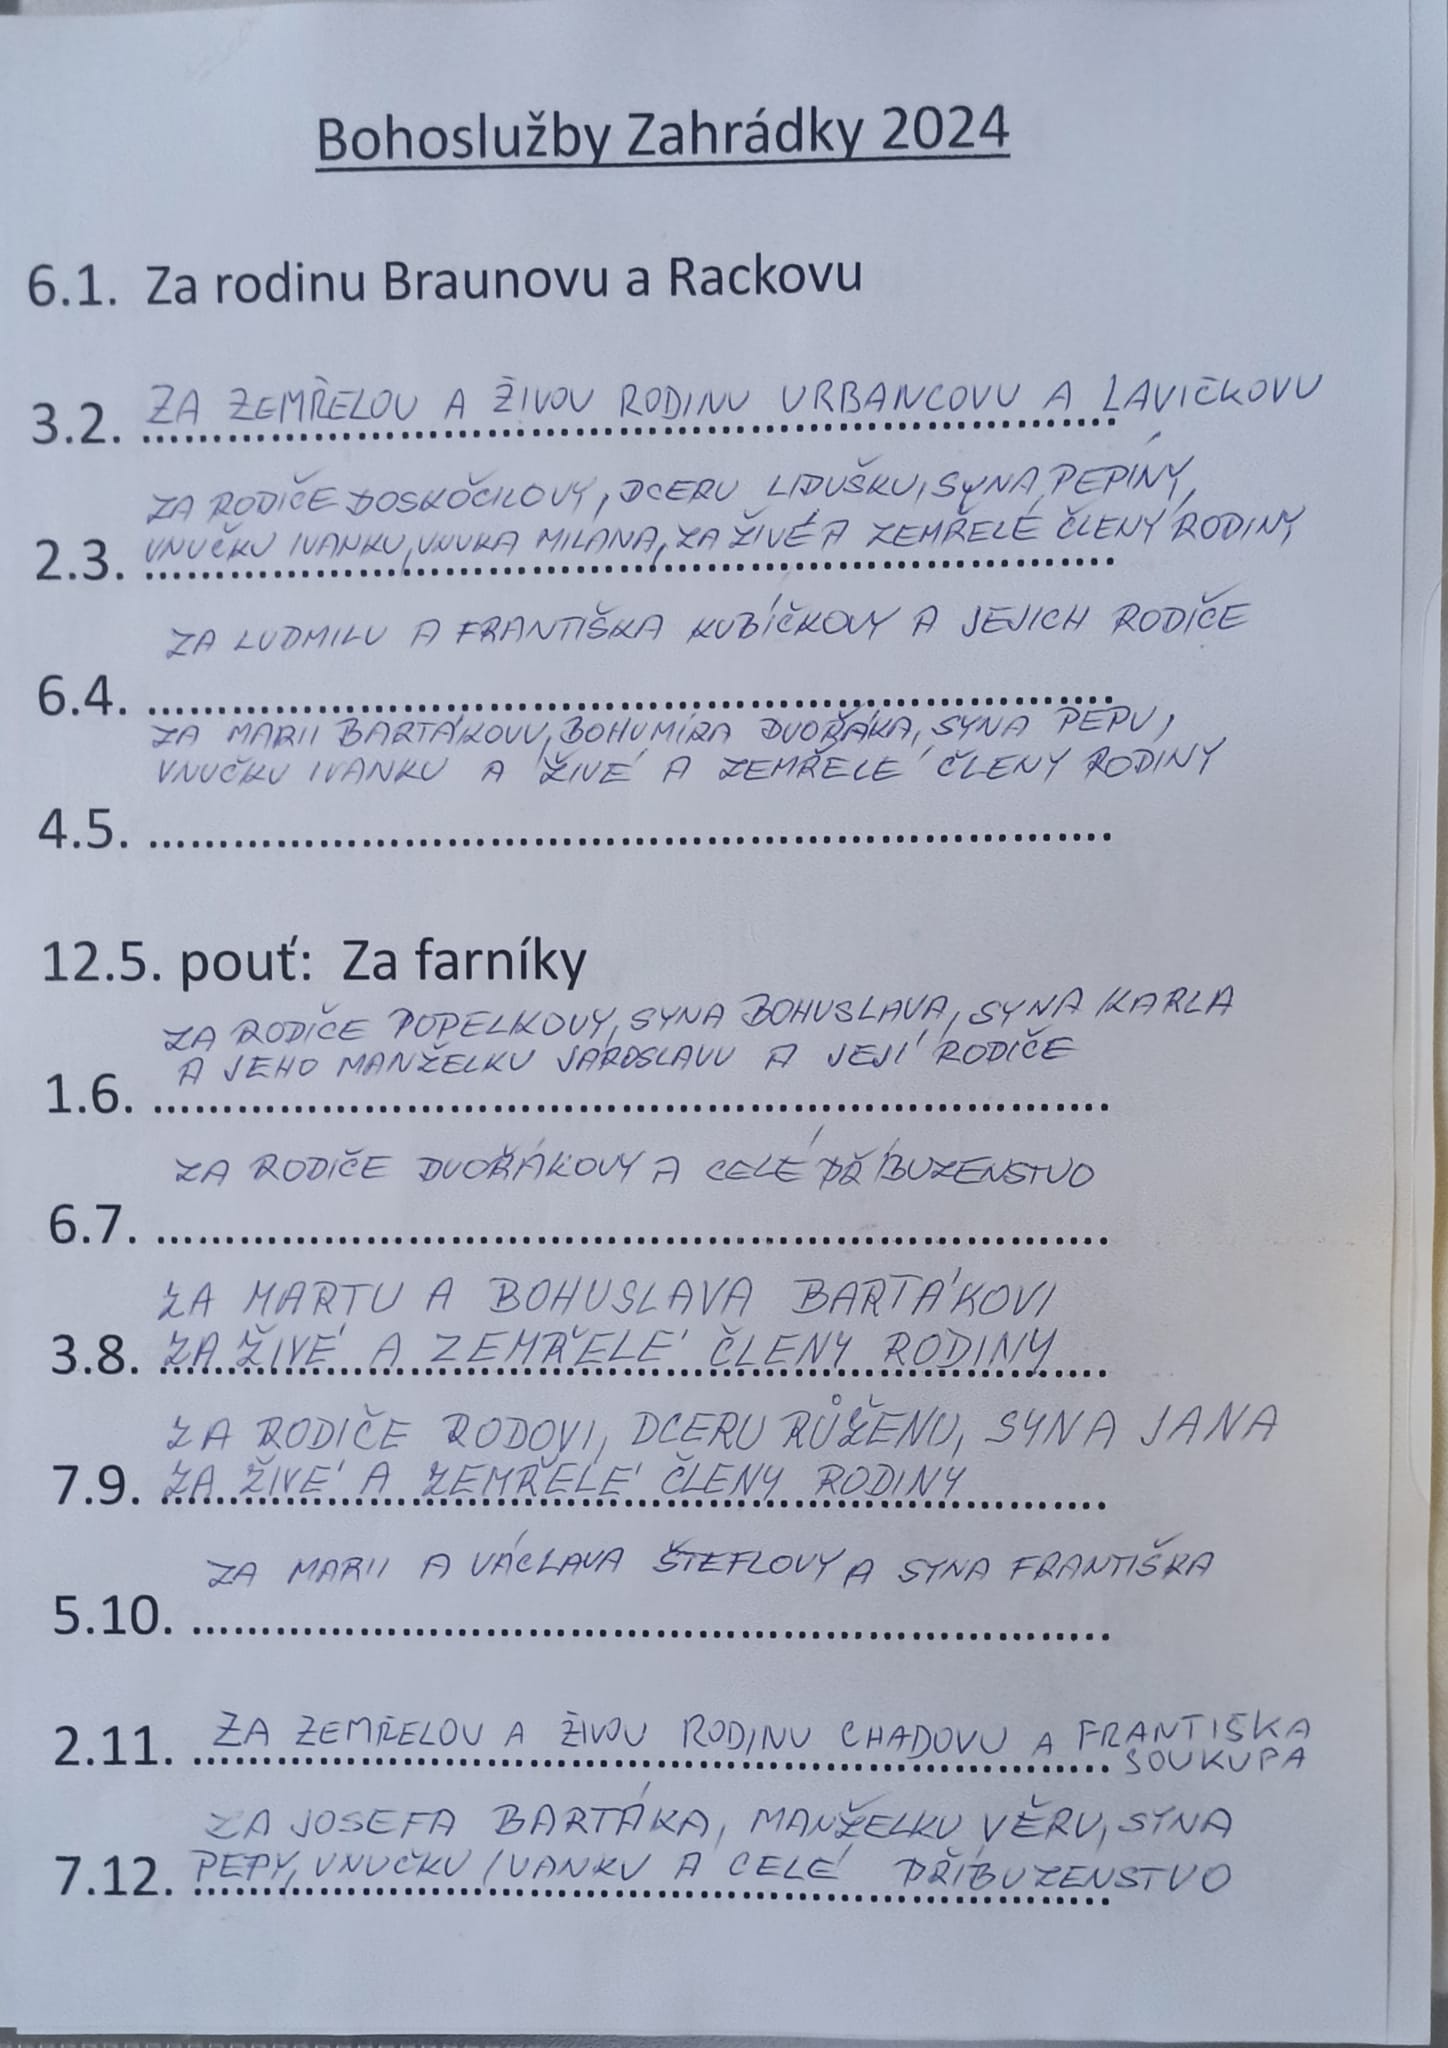 Bohoslužby Zahrádky 2024
6.1. Za rodinu Braunovu a Rackovu
3.2. ZA ZEMŘELOU A ŽIVOU RODINU URBANCOVU A LAVIČKOVU
ZA RODIČE DOSKOČILOVY, DCERU LIDUŠKU, SYNA PEPÍNY,
2.3. VNUČKU IVANKU, VNUKA MILANA, ZA ŽIVÉ A ZEMŘELÉ ČLENY RODINY
ZA LUDMILU A FRANTIŠKA KUBÍČKOVY A JEJICH RODIČE
6.4. ........................................
ZA MARII BARTÁKOVU, BOHUMÍRA DVOŘÁKA, SYNA PEPU,
VNUČKU IVANKU A ŽIVÉ A ZEMŘELÉ ČLENY RODINY
4.5. ........................................
12.5. pouť: Za farníky
ZA RODIČE POPELKOVY, SYNA BOHUSLAVA, SYNA KARLA
A JEHO MANŽELKU JAROSLAVU A JEJÍ RODIČE
1.6. ........................................
ZA RODIČE DVOŘÁKOVY A CELÉ PŘÍBUZENSTVO
6.7. ........................................
ZA MARTU A BOHUSLAVA BARTÁKOVI
3.8. ZA ŽIVÉ A ZEMŘELÉ ČLENY RODINY
ZA RODIČE RODOVI, DCERU RŮŽENU, SYNA JANA
7.9. ZA ŽIVÉ A ZEMŘELÉ ČLENY RODINY
ZA MARII A VÁCLAVA ŠTEFLOVY A SYNA FRANTIŠKA
5.10. ........................................
2.11. ZA ZEMŘELOU A ŽIVOU RODINU CHADOVU A FRANTIŠKA
SOUKUPA
ZA JOSEFA BARTÁKA, MANŽELKU VĚRU, SYNA
7.12. PEPY, VNUČKU IVANKU A CELÉ PŘÍBUZENSTVO